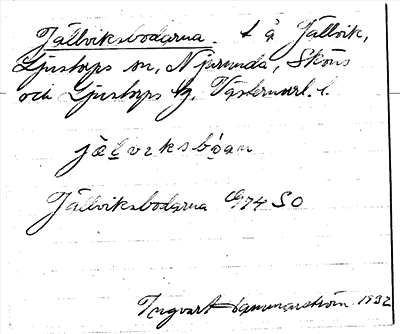 Jällviksbodarna. f. å Jällvik,
Ljustorps sn, Njurunda, Sköns
och Ljustorps tg, Västernorrl. l.
jälviksbo̊an
Jällviksbodarna G74 SO
Ingvart Hammarström 1932